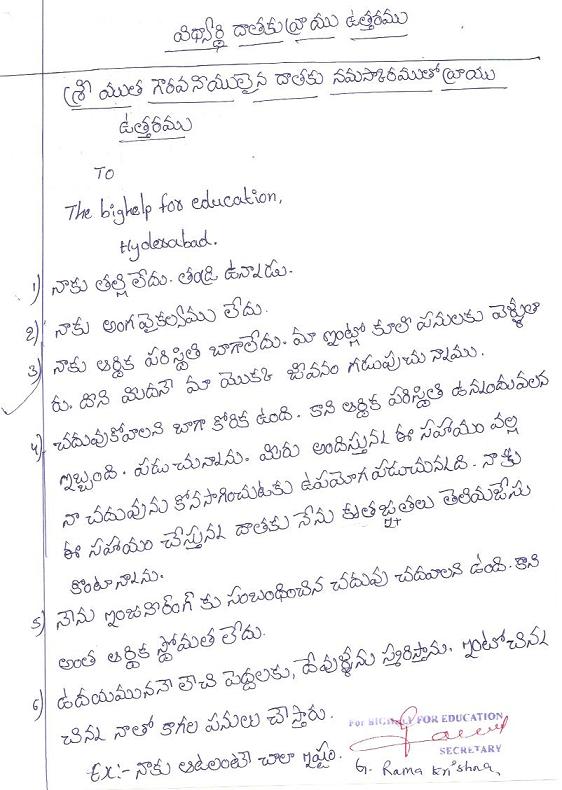 విద్యార్థి దాతకు వ్రాయు ఉత్తరము
శ్రీ యుత గౌరవనీయులైన దాతకు నమస్కారముతో వ్రాయు
ఉత్తరము
To
The bighelp for education,
Hyderabad.
1) నాకు తల్లి లేదు. తండ్రి ఉన్నాడు.
2) నాకు అంగవైకల్యము లేదు.
3) నాకు ఆర్థిక పరిస్థితి బాగాలేదు. మా ఇంట్లో కూలి పనులకు వెళ్ళుతా
రు. దాని మీదనే మా యొక్క జీవనం గడుపుచు న్నాము.
4) చదువుకోవాలని బాగా కోరిక ఉంది. కాని ఆర్థిక పరిస్థితి ఉన్నందువలన
ఇబ్బంది. పడుచున్నాను. మీరు అందిస్తున్న ఈ సహాయం వల్ల
నా చదువును కొనసాగించుటకు ఉపయోగపడుచున్నది. నాకు
ఈ సహాయం చేస్తున్న దాతకు నేను కృతజ్ఞతలు తెలియజేసు
కొంటున్నాను.
5) నేను ఇంజనీరింగ్ కు సంబంధించిన చదువు చదవాలని ఉంది. కాని
అంత ఆర్థిక స్తోమత లేదు.
6) ఉదయముననే లేచి పెద్దలకు, దేవుళ్ళను స్మరిస్తాను. ఇంటో చిన్న
చిన్న నాతో కాగల పనులు చేస్తారు.
Ex:- నాకు ఆటలంటే చాలా ఇష్టం.
For BIGHELP FOR EDUCATION
SECRETARY
G. Rama Krishna,